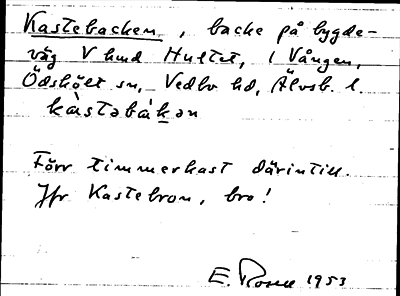 Kastebacken, backe på bygde-
väg V hmd Hultet, i Vången,
Ödskölt sn, Vedbo hd, Älvsb. l.
kàstəbàkən
Förr timmerkast därintill.
Jfr Kastebron, bro!
E. Rosell 1953